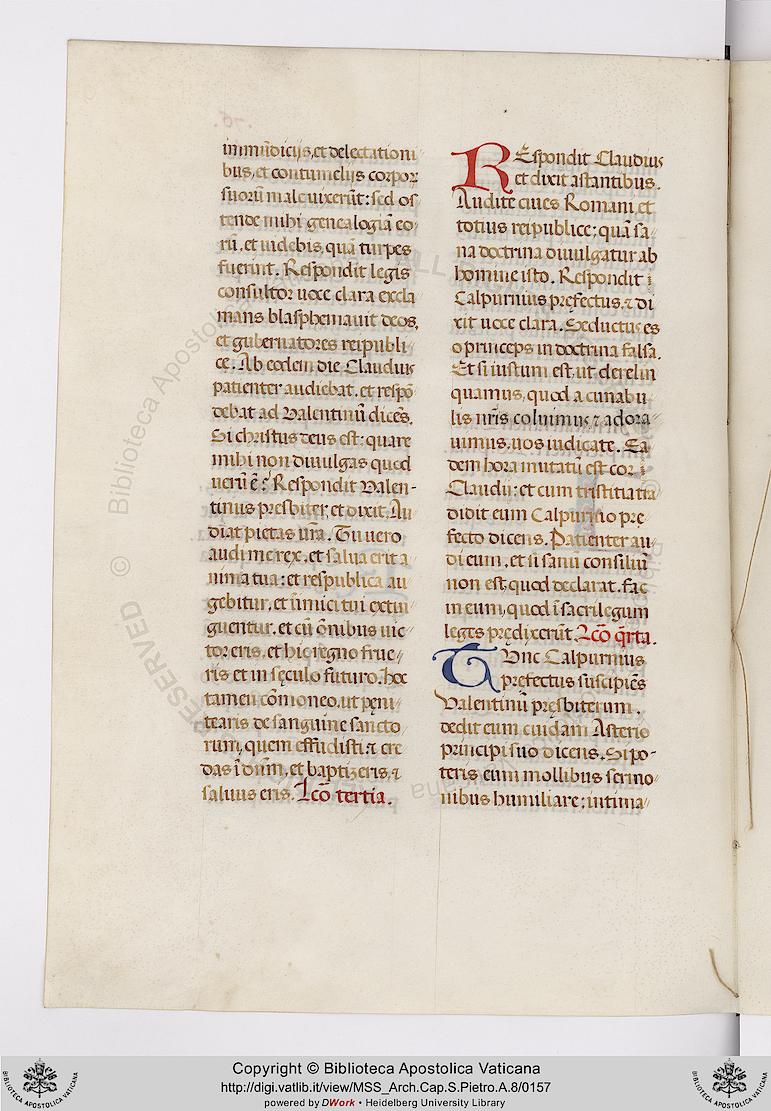 immūdiciis, et delectationi
bus, et contumeliis corpor
suorū male uixerūt: sed os
tende mihi genealogiam eo
rū, et uidebis quā turpes
fuerint. Respondit legis
consultor uoce clara excla
mans blasphemauit deos,
et gubernatores reipubli
ce. Ab eodem die Claudius
patienter audiebat, et respō
debat ad Valentinū dicēs.
Si christus deus est: quare
mihi non diuulgas quod
uerū ē? Respondit Valen-
tinus presbiter, et dixit. Au
diat pietas ura. Tu uero
audi me rex, et salua erit a
nima tua: et respublica au
gebitur, et inimici tui extin
guentur, et cū ōnibus uic
tor eris, et hic regno frue
ris et in sęculo futuro. hoc
tamen cōmoneo, ut pęni
tearis de sanguine sancto
rum, quem effudisti: ⁊ cre
das ī dnm, et baptizeris, ⁊
saluus eris. Lcō tertia.
REspondit Claudius
et dixit astantibus.
Audite ciues Romani, et
totius reipublice: quā sa
na doctrina diuulgatur ab
homine isto. Respondit
Calpurnius pręfectus, ⁊ di
xit uoce clara. Seductus es
o princeps in doctrina falsa.
Et si iustum est, ut derelin
quamus, quod a cunabu
lis nr̄is colimus ⁊ adora
uimus, uos iudicate. Ea
dem hora mutatū est cor
Claudii: et cum tristitia tra
didit eum Calpurnio pre
fecto dicens. Patienter au
di eum, et si sanū consiliū
non est, quod declarat. fac
in eum, quod ī sacrilegum
leges prędixerūt. Lcō q̄rta.
TUnc Calpurnius
pręfectus suscipiēs
Valentinū pręsbiterum.
dedit eum cuidam Asterio
principi suo dicens. Si po-
teris eum mollibus sermo
nibus humiliare: intima
© Biblioteca Apostolica Vaticana
Copyright © Biblioteca Apostolica Vaticana
http://digi.vatlib.it/view/MSS_Arch.Cap.S.Pietro.A.8/0157
powered by DWork • Heidelberg University Library
BIBLIOTECA APOSTOLICA VATICANA
BIBLIOTECA APOSTOLICA VATICANA